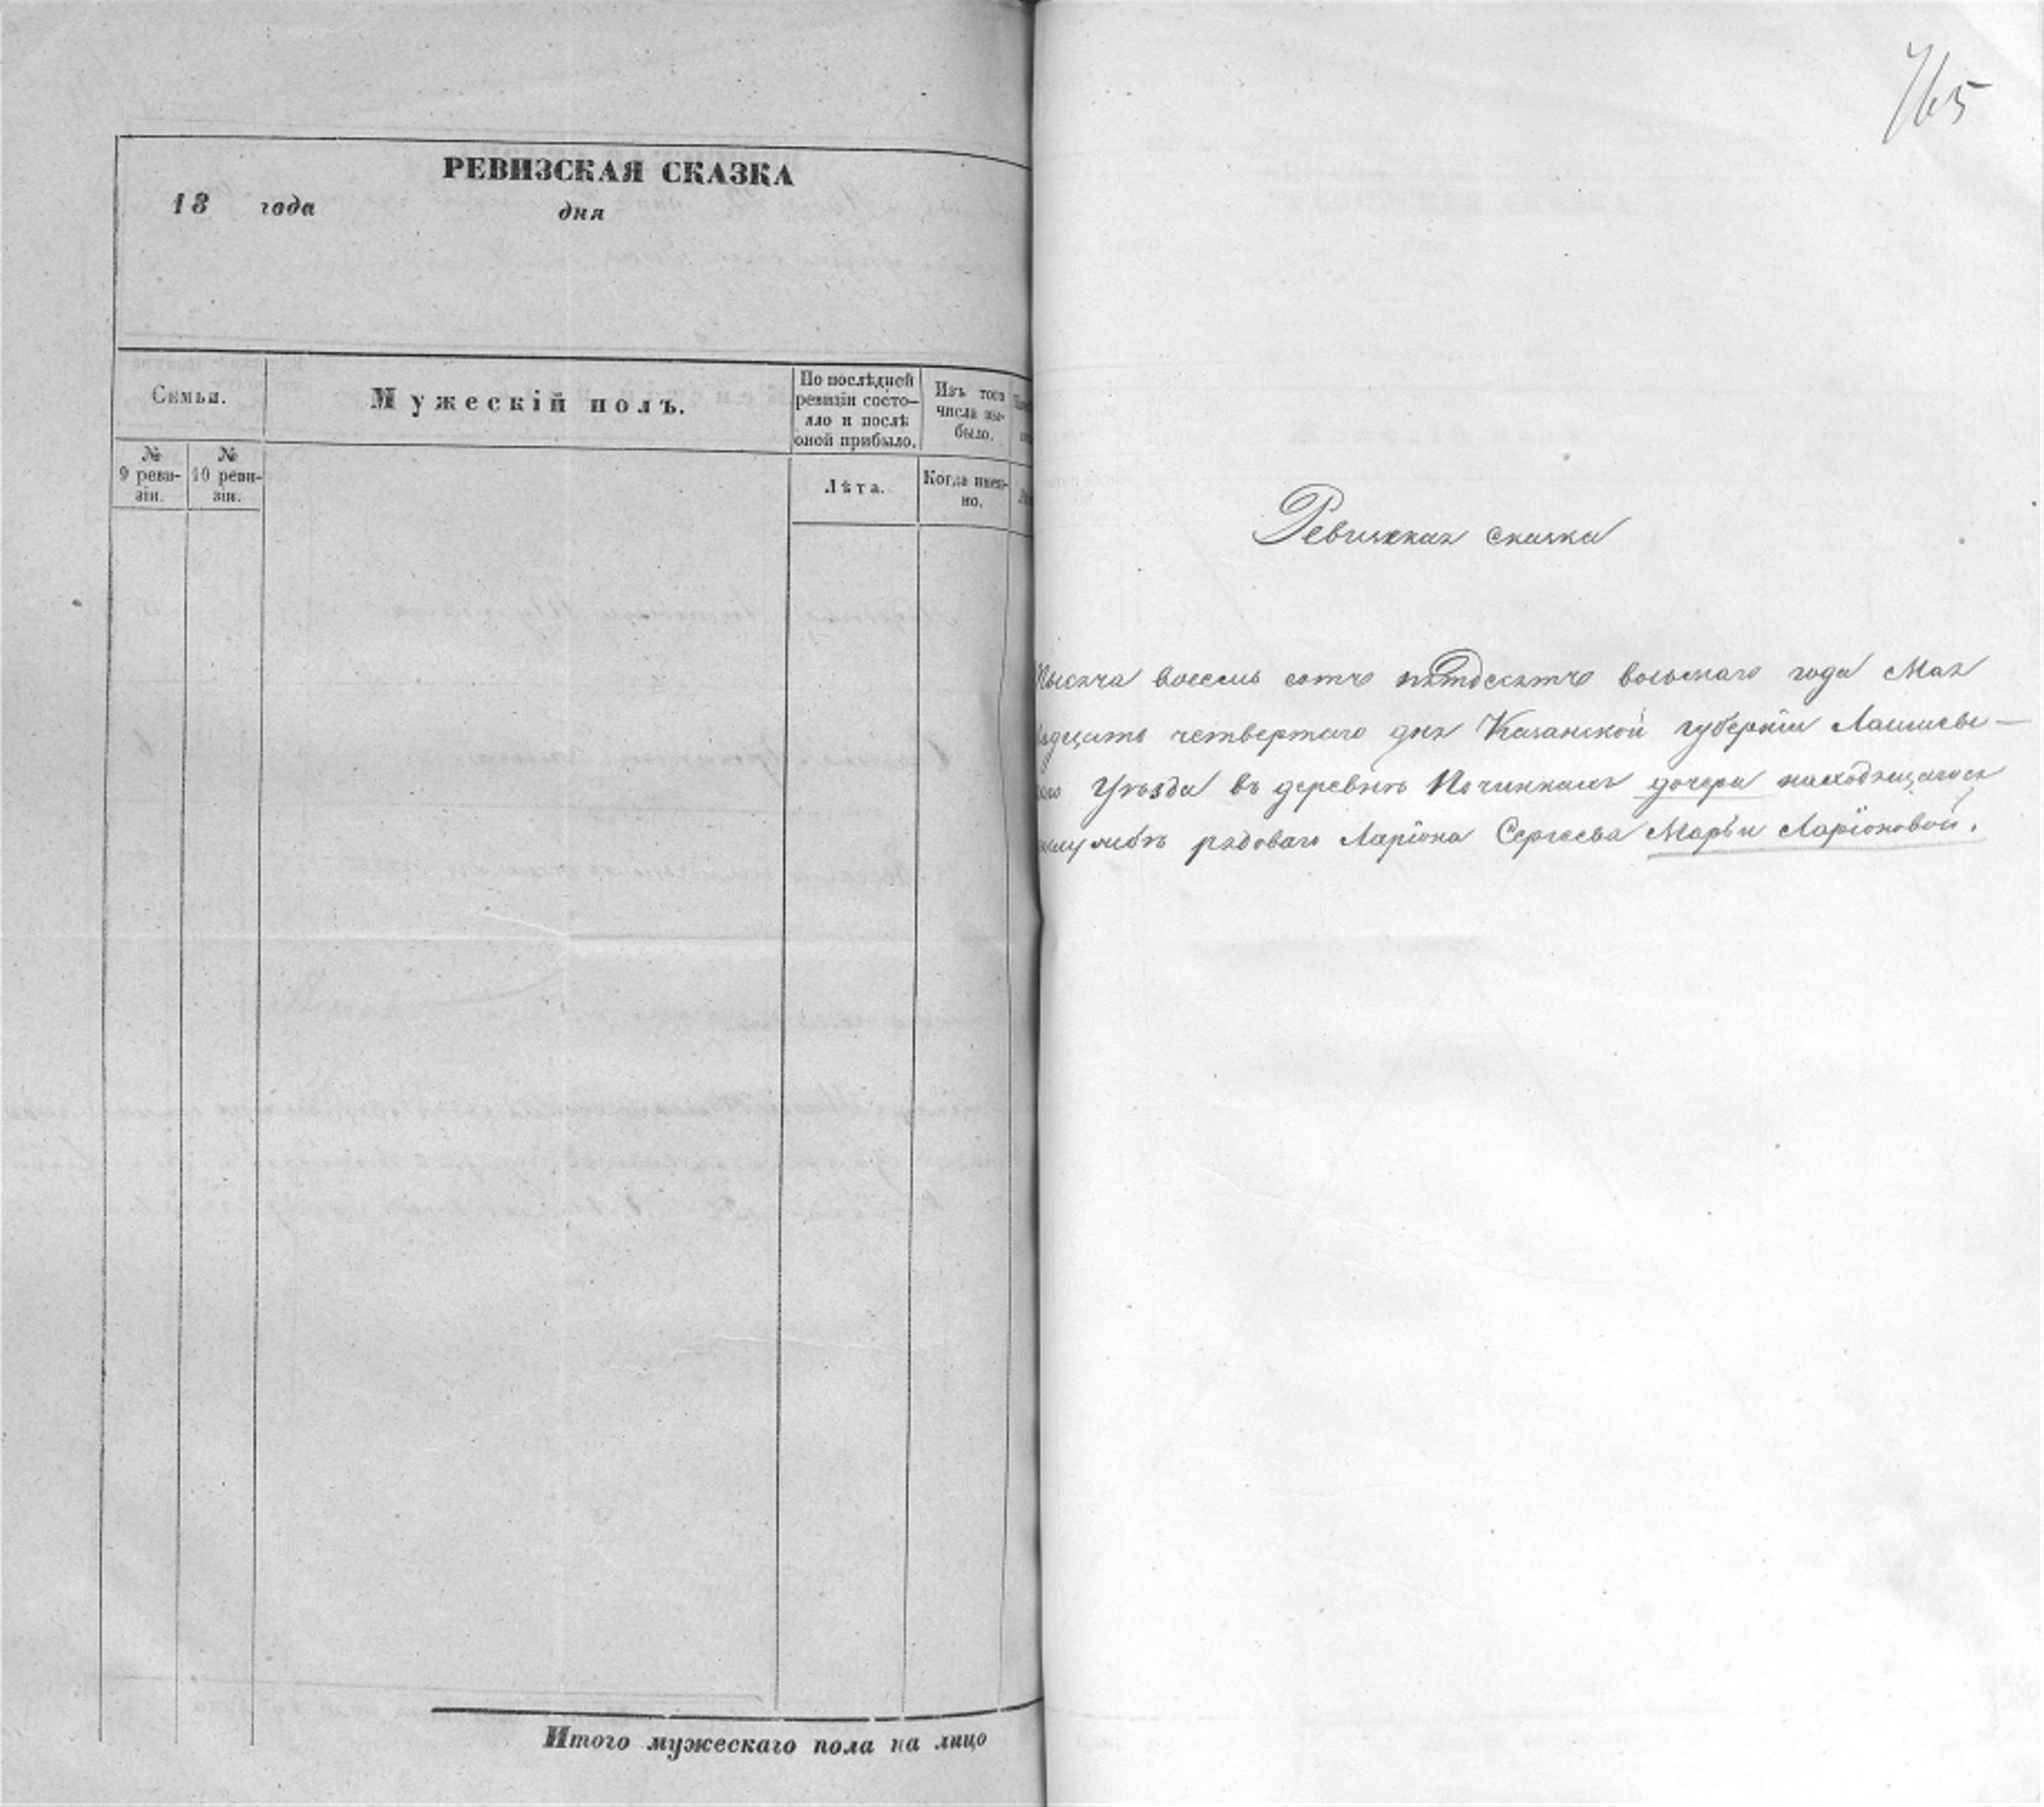 РЕВИЗСКАЯ СКАЗКА
18 года дня
Семьи.
№ 9 реви-
зіи.
№ 10 реви-
зіи.
Мужескій полъ.
По послѣдней
ревизіи состо-
яло и послѣ
оной прибыло.
Лѣта.
Изъ того
числа вы-
было.
Когда имен-
но.
Итого мужескаго пола на лицо
765
Ревизская сказка
Тысяча восемь сотъ пятдесятъ восьмаго года Мая
четвертаго дня Казанской губерніи Лаишевс-
Уѣзда въ деревнѣ Починкахъ дочери находящагося
рядоваго Ларіона Сергѣева Марьи Ларіоновой.